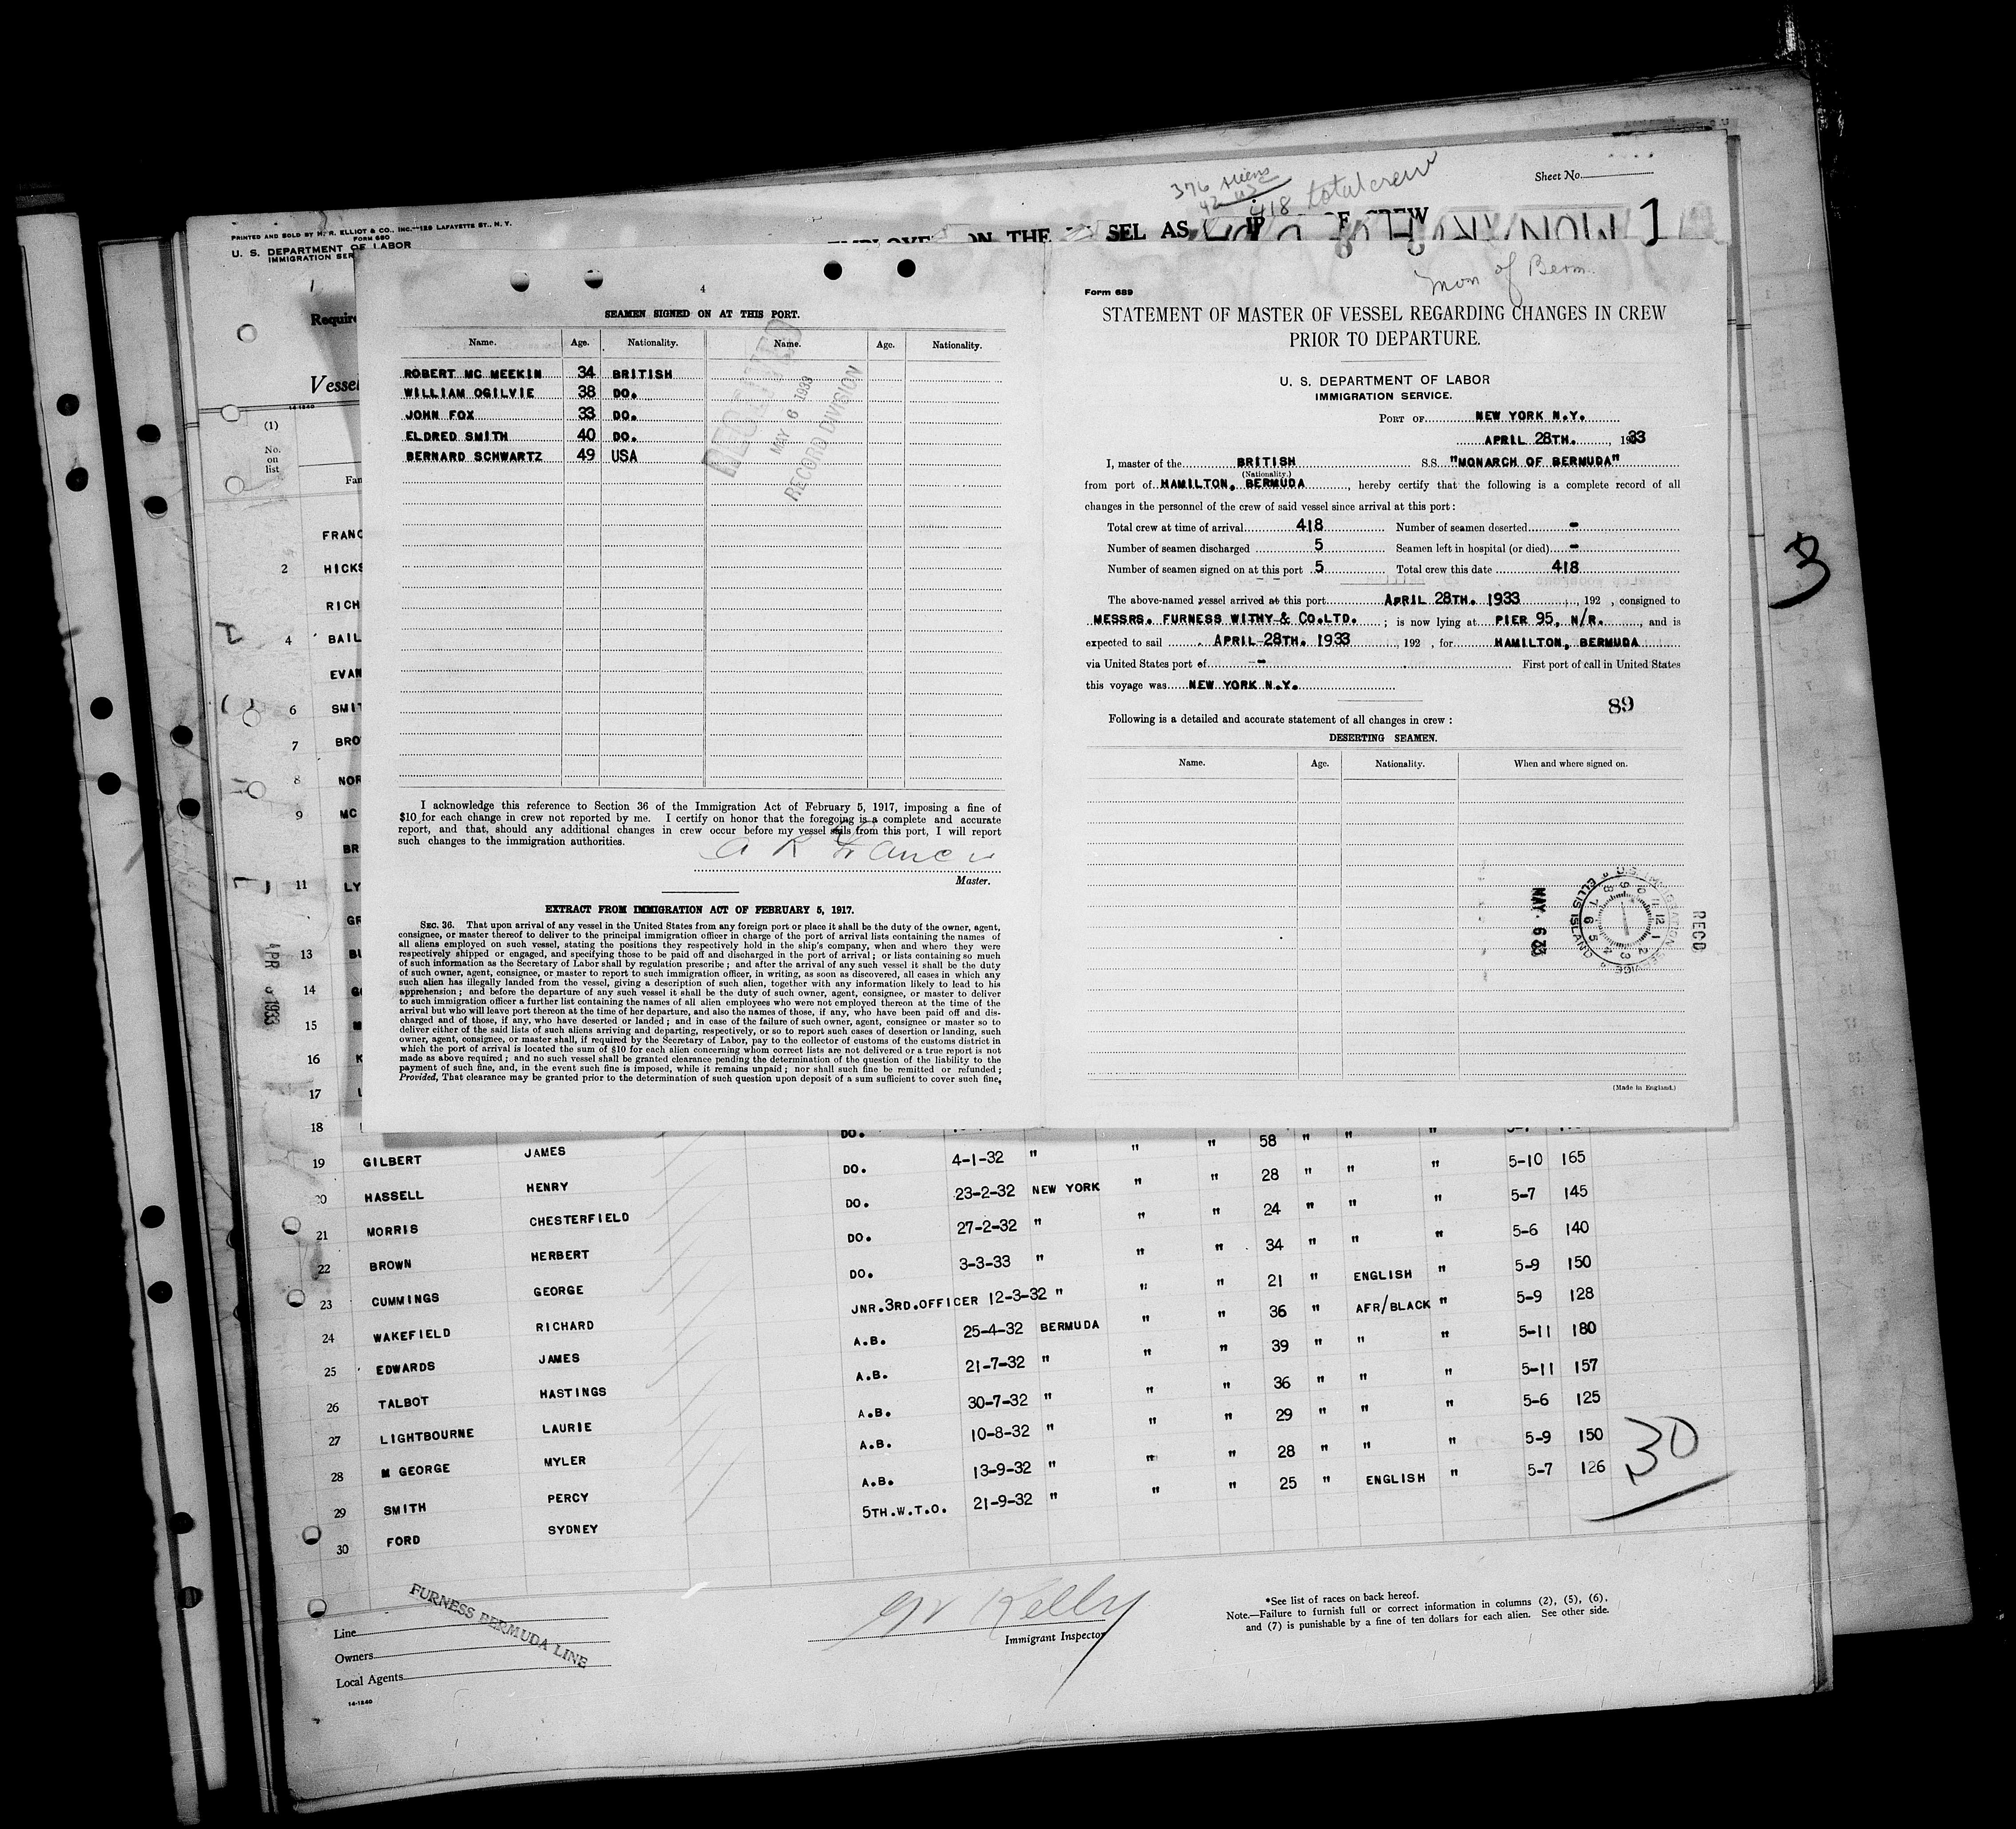 PRINTED AND SOLD BY H. R. ELLIOT & CO., INC.—129 LAFAYETTE ST., N. Y.
FORM 680
U. S. DEPARTMENT OF LABOR
IMMIGRATION SER
376 aliens
42 US
418 total crew
Sheet No.
ON THE SEL AS OF CREW
1
Require
Vessel
14-1240
(1)
No.
on
list
Fam
FRANC
2 HICKS
RICH
4 BAIL
EVAN
6 SMIT
7 BRO
8 NOR
9 MC
BR
11 LY
GR
13 BU
14
15
16
17
18
APR 1933
4
SEAMEN SIGNED ON AT THIS PORT.
Name. Age. Nationality. Name. Age. Nationality.
ROBERT MC MEEKIN 34 BRITISH
WILLIAM OGILVIE 38 DO.
JOHN FOX 33 DO.
ELDRED SMITH 40 DO.
BERNARD SCHWARTZ 49 USA
RECEIVED
MAY 6 1933
RECORD DIVISION
I acknowledge this reference to Section 36 of the Immigration Act of February 5, 1917, imposing a fine of
$10 for each change in crew not reported by me. I certify on honor that the foregoing is a complete and accurate
report, and that, should any additional changes in crew occur before my vessel sails from this port, I will report
such changes to the immigration authorities.
A R Francis
Master.
EXTRACT FROM IMMIGRATION ACT OF FEBRUARY 5, 1917.
SEC. 36. That upon arrival of any vessel in the United States from any foreign port or place it shall be the duty of the owner, agent,
consignee, or master thereof to deliver to the principal immigration officer in charge of the port of arrival lists containing the names of
all aliens employed on such vessel, stating the positions they respectively hold in the ship's company, when and where they were
respectively shipped or engaged, and specifying those to be paid off and discharged in the port of arrival; or lists containing so much
of such information as the Secretary of Labor shall by regulation prescribe; and after the arrival of any such vessel it shall be the duty
of such owner, agent, consignee, or master to report to such immigration officer, in writing, as soon as discovered, all cases in which any
such alien has illegally landed from the vessel, giving a description of such alien, together with any information likely to lead to his
apprehension; and before the departure of any such vessel it shall be the duty of such owner, agent, consignee, or master to deliver
to such immigration officer a further list containing the names of all alien employees who were not employed thereon at the time of the
arrival but who will leave port thereon at the time of her departure, and also the names of those, if any, who have been paid off and dis-
charged and of those, if any, who have deserted or landed; and in case of the failure of such owner, agent, consignee or master so to
deliver either of the said lists of such aliens arriving and departing, respectively, or so to report such cases of desertion or landing, such
owner, agent, consignee, or master shall, if required by the Secretary of Labor, pay to the collector of customs of the customs district in
which the port of arrival is located the sum of $10 for each alien concerning whom correct lists are not delivered or a true report is not
made as above required; and no such vessel shall be granted clearance pending the determination of the question of the liability to the
payment of such fine, and, in the event such fine is imposed, while it remains unpaid; nor shall such fine be remitted or refunded;
Provided, That clearance may be granted prior to the determination of such question upon deposit of a sum sufficient to cover such fine,
Mon of Berm.
Form 689
STATEMENT OF MASTER OF VESSEL REGARDING CHANGES IN CREW
PRIOR TO DEPARTURE.
U. S. DEPARTMENT OF LABOR
IMMIGRATION SERVICE.
PORT OF NEW YORK N.Y.
APRIL 28TH. , 1933
I, master of the BRITISH S.S. "MONARCH OF BERMUDA"
(Nationality.)
from port of HAMILTON, BERMUDA , hereby certify that the following is a complete record of all
changes in the personnel of the crew of said vessel since arrival at this port:
Total crew at time of arrival 418 Number of seamen deserted -
Number of seamen discharged 5 Seamen left in hospital (or died) -
Number of seamen signed on at this port 5 Total crew this date 418
The above-named vessel arrived at this port APRIL 28TH. 1933 , 192 , consigned to
MESSRS. FURNESS WITHY & CO.LTD. ; is now lying at PIER 95, N/R. , and is
expected to sail APRIL-28TH. 1933 192 , for HAMILTON, BERMUDA
via United States port of -- First port of call in United States
this voyage was NEW YORK N.Y.
89
Following is a detailed and accurate statement of all changes in crew:
DESERTING SEAMEN.
Name. Age. Nationality. When and where signed on.
RECD
MAY 6 33
IMMIGRATION SERVICE ELLIS ISLAND
(Made in England.)
3
DO.
19 GILBERT JAMES DO. 4-1-32 " " " 58 " " " 5-10 165
20 HASSELL HENRY DO. 23-2-32 NEW YORK " " 28 " " " 5-7 145
21 MORRIS CHESTERFIELD DO. 27-2-32 " " " 24 " " " 5-6 140
22 BROWN HERBERT DO. 3-3-33 " " " 34 " " " 5-9 150
23 CUMMINGS GEORGE JNR.3RD.OFFICER 12-3-32 " " " 21 " ENGLISH " 5-9 128
24 WAKEFIELD RICHARD A.B. 25-4-32 BERMUDA " " 36 " AFR/BLACK " 5-11 180
25 EDWARDS JAMES A.B. 21-7-32 " " " 39 " " " 5-11 157
26 TALBOT HASTINGS A.B. 30-7-32 " " " 36 " " " 5-6 125
27 LIGHTBOURNE LAURIE A.B. 10-8-32 " " " 29 " " " 5-9 150
28 M GEORGE MYLER A.B. 13-9-32 " " " 28 " " " 5-7 126
29 SMITH PERCY 5TH.W.T.O. 21-9-32 " " " 25 " ENGLISH "
30 FORD SYDNEY
30
FURNESS BERMUDA LINE
Line
Owners
Local Agents
14-1240
Kelly
Immigrant Inspector
*See list of races on back hereof.
Note.—Failure to furnish full or correct information in columns (2), (5), (6),
and (7) is punishable by a fine of ten dollars for each alien. See other side.